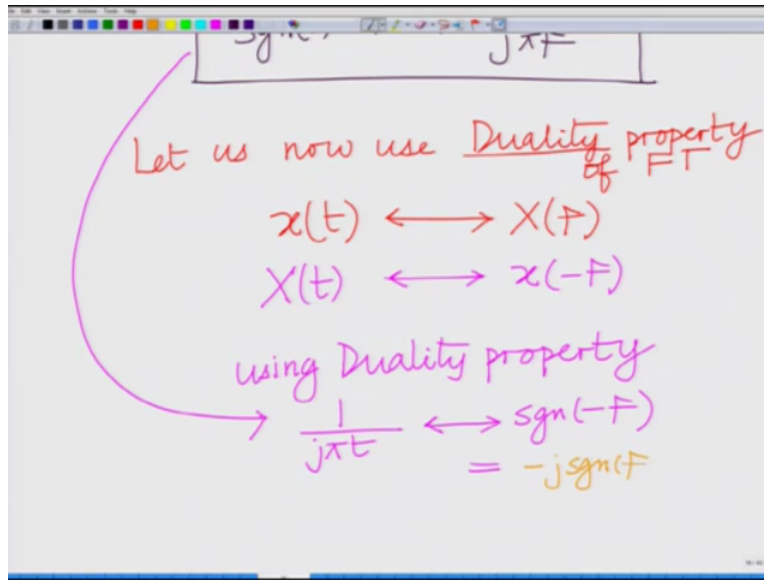 sgn
jπF
Let us now use Duality property
of FT
x(t) ⟷ X(F)
X(t) ⟷ x(-F)
using Duality property
1/jπt ⟷ sgn(-F)
= -jsgn(F